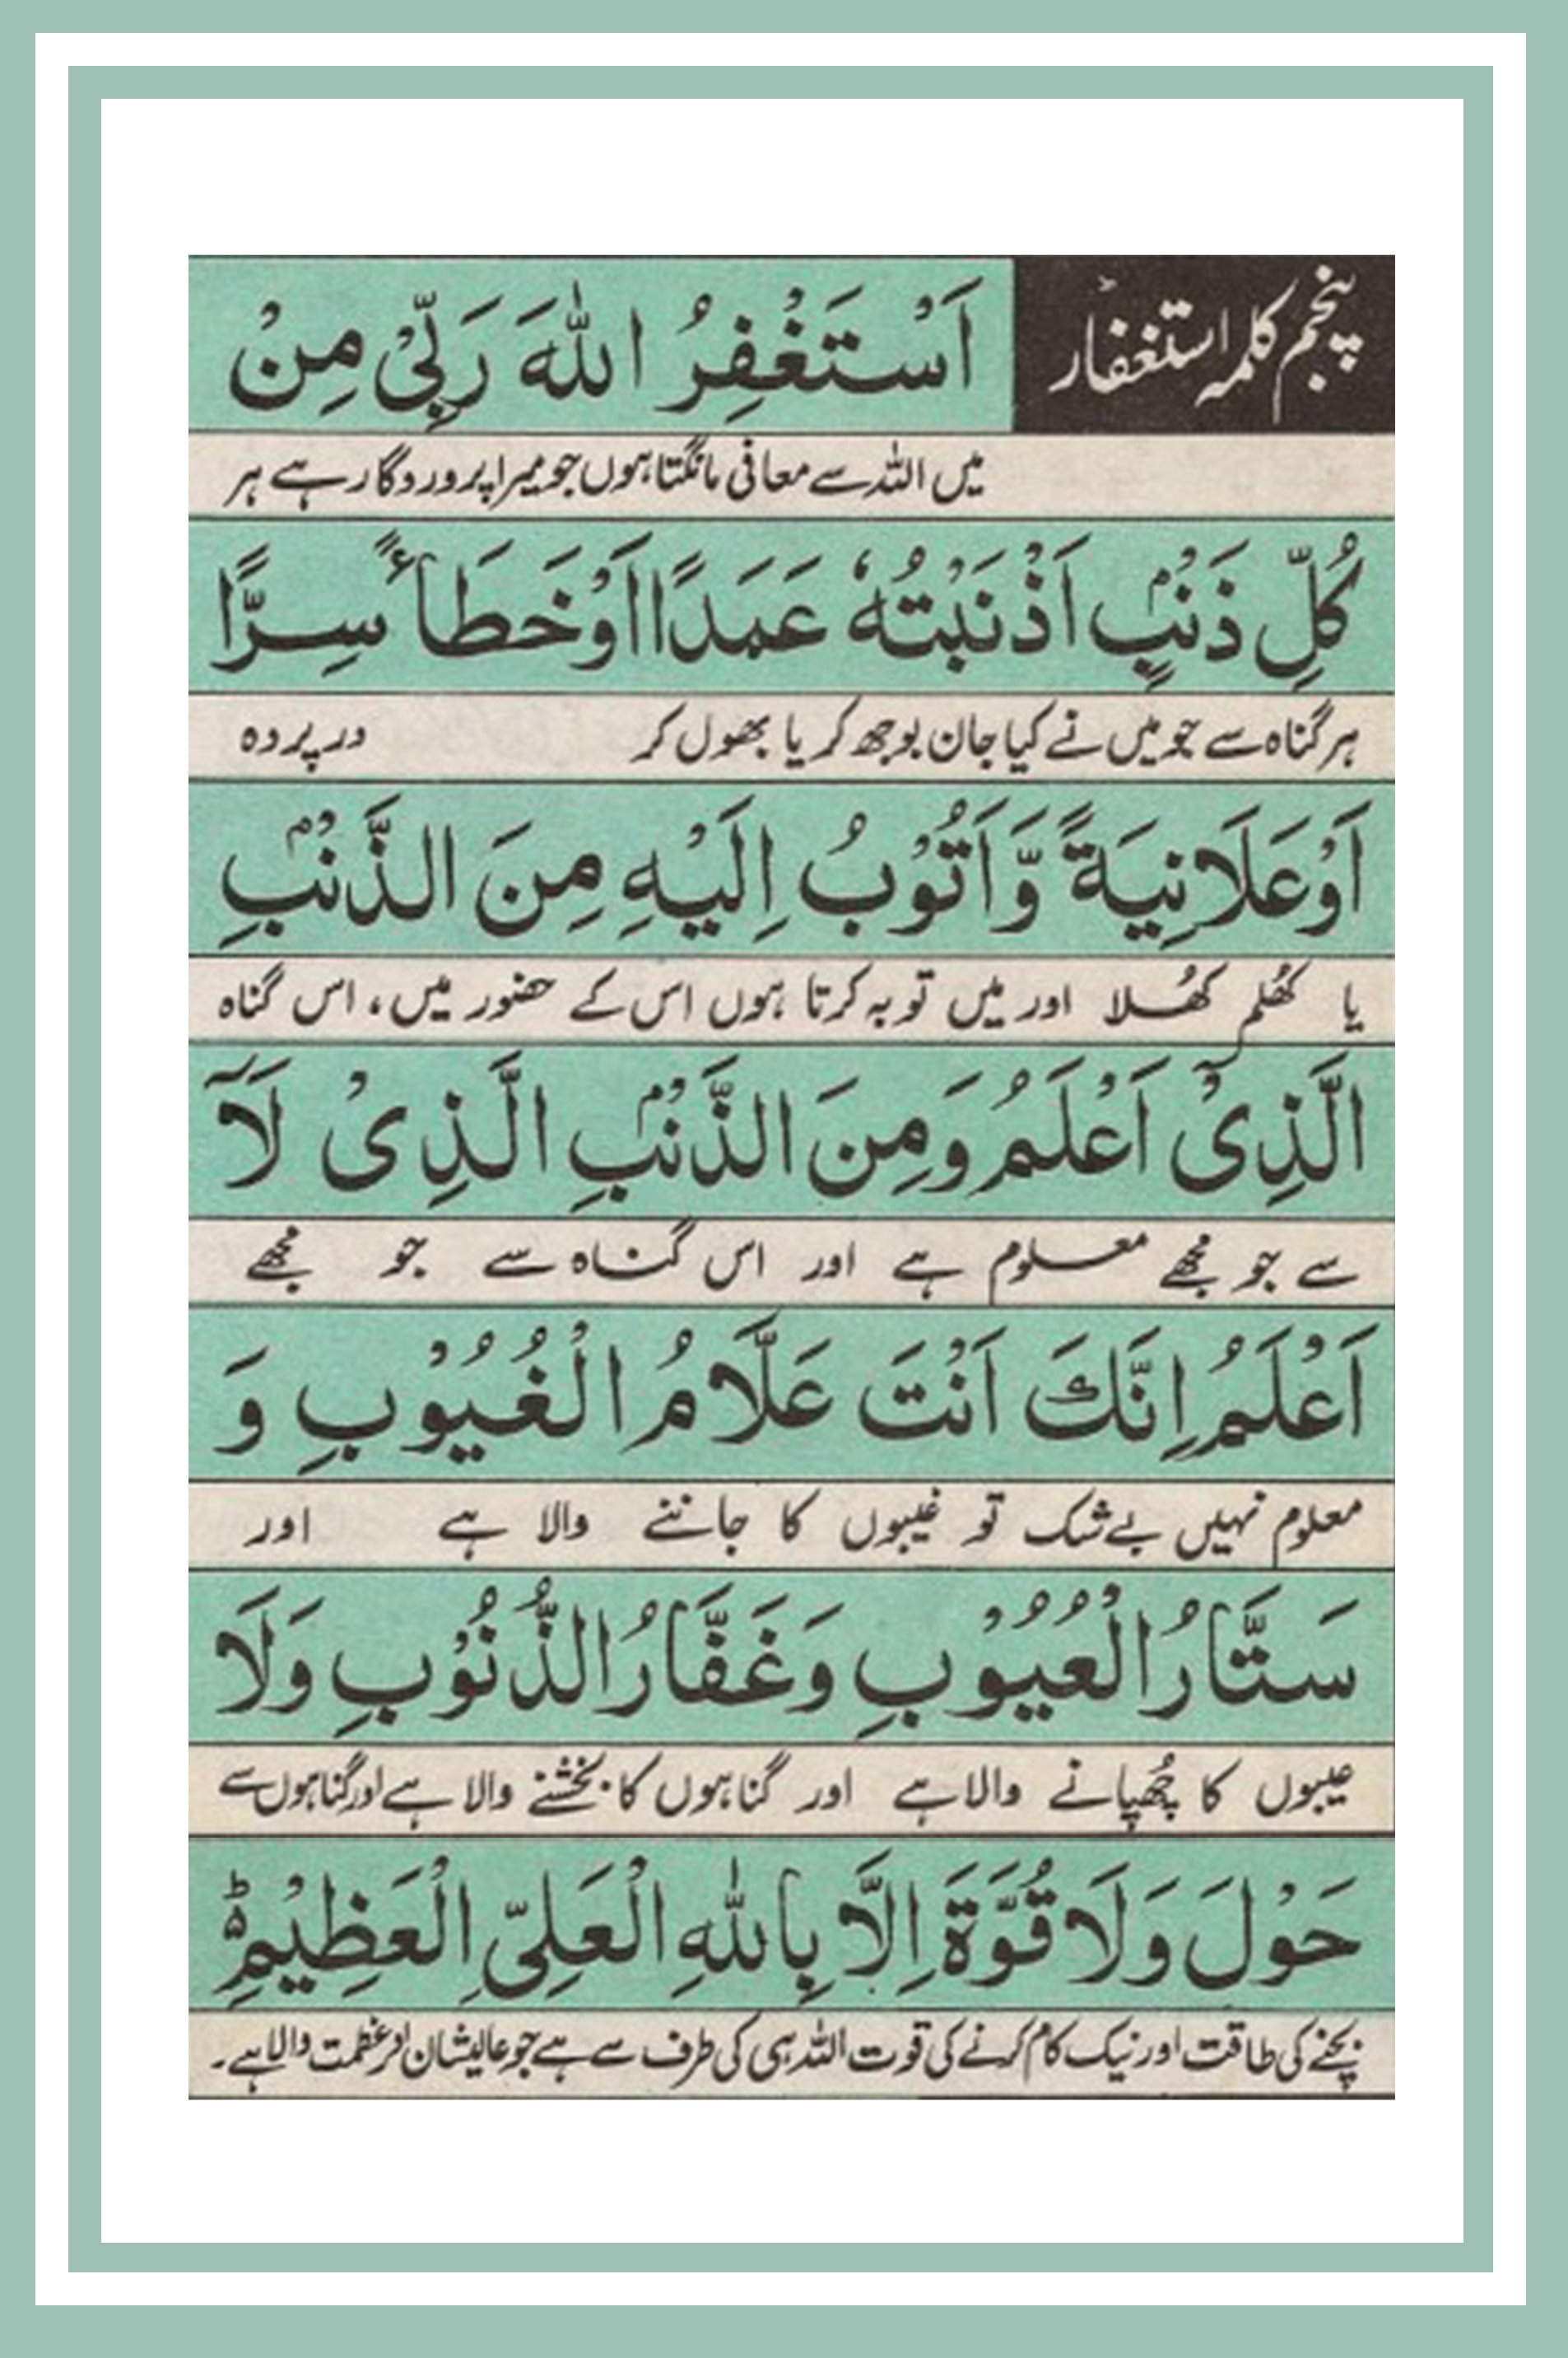 پنجم کلمہ استغفار
اَسْتَغْفِرُ اللّٰهَ رَبِّیْ مِنْ
میں اللہ سے معافی مانگتا ہوں جو میرا پروردگار ہے ہر
كُلِّ ذَنْۢبٍ اَذْنَبْتُهٗ عَمَدًا اَوْ خَطَأً سِرًّا
ہر گناہ سے جو میں نے کیا جان بوجھ کر یا بھول کر درپردہ
اَوْ عَلَانِیَةً وَّاَتُوْبُ اِلَیْهِ مِنَ الذَّنْۢبِ
یا کھُلم کھُلا اور میں توبہ کرتا ہوں اس کے حضور میں، اس گناہ
الَّذِیْ اَعْلَمُ وَمِنَ الذَّنْۢبِ الَّذِیْ لَآ
سے جو مجھے معلوم ہے اور اس گناہ سے جو مجھے
اَعْلَمُ اِنَّكَ اَنْتَ عَلَّامُ الْغُیُوْبِ وَ
معلوم نہیں بے شک تو غیبوں کا جاننے والا ہے اور
سَتَّارُ الْعُیُوْبِ وَغَفَّارُ الذُّنُوْبِ وَلَا
عیبوں کا چُھپانے والا ہے اور گناہوں کا بخشنے والا ہے اور گناہوں سے
حَوْلَ وَلَا قُوَّةَ اِلَّا بِاللّٰهِ الْعَلِیِّ الْعَظِیْمِؕ
بچنے کی طاقت اور نیک کام کرنے کی قوت اللہ ہی کی طرف سے ہے جو عالیشان اور عظمت والا ہے۔